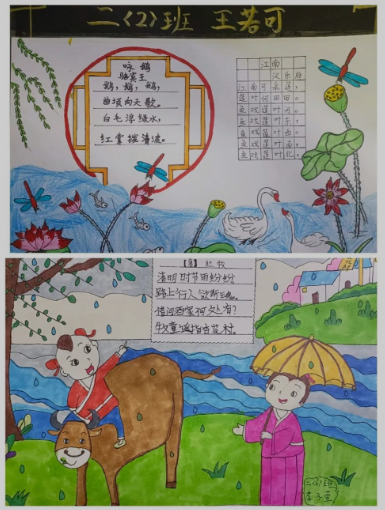 二(2)班 王若可
咏 鹅
骆宾王
鹅，鹅，鹅，
曲项向天歌。
白毛浮绿水，
红掌拨清波。
江南
汉乐府
江南可采莲，
莲叶何田田。
鱼戏莲叶间。
鱼戏莲叶东，
鱼戏莲叶西，
鱼戏莲叶南，
鱼戏莲叶北。
【唐】杜牧
清明时节雨纷纷
路上行人欲断魂。
借问酒家何处有?
牧童遥指杏花村